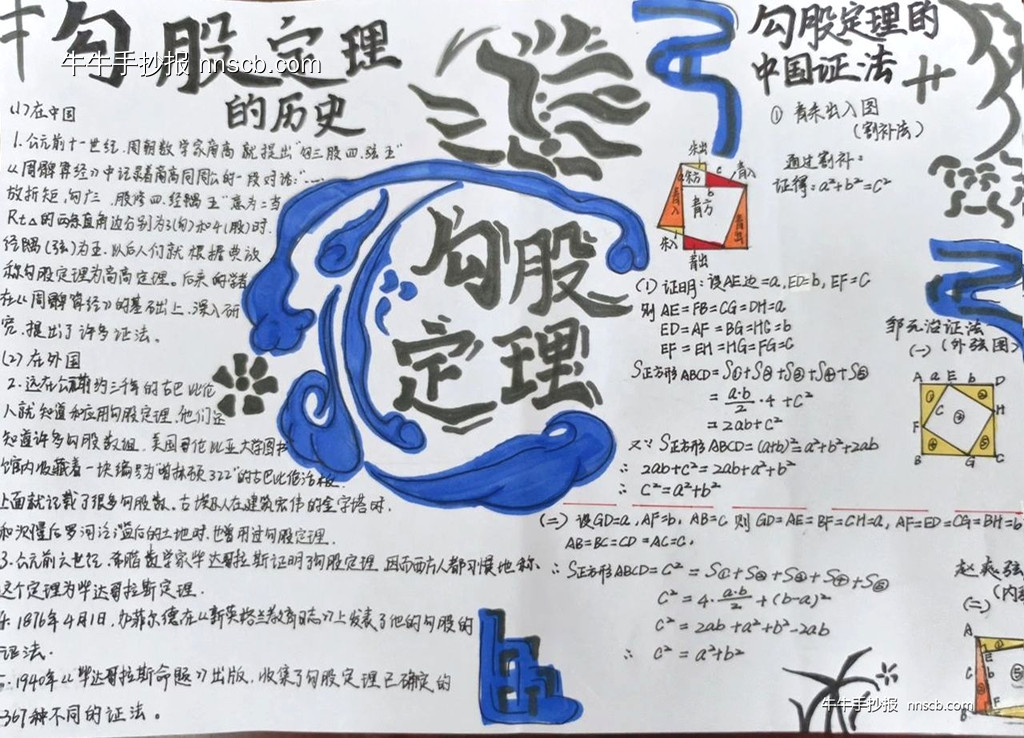 勾股定理
的历史
牛牛手抄报 nnscb.com
(1)在中国
1.公元前十一世纪,周朝数学家商高就提出"勾三股四弦五"
《周髀算经》中记录着商高同周公的一段对话:"……
故折矩,勾广三,股修四,经隅五"意为:当
Rt△的两条直角边分别为3(勾)和4(股)时.
径隅(弦)为五.以后人们就根据典故
称勾股定理为商高定理。后来的学者
在《周髀算经》的基础上,深入研
究,提出了许多证法。
(2)在外国
2.远在公元前约三千年的古巴比伦
人就知道和应用勾股定理,他们还
知道许多勾股数组.美国哥伦比亚大学图书
馆内收藏着一块编号为"普林顿322"的古巴比伦泥板
上面就记载了很多勾股数。古埃及人在建筑宏伟的金字塔时.
和泛滥后的土地时,也曾用过勾股定理.
3.公元前六世纪,希腊数学家毕达哥拉斯证明了勾股定理,因而西方人都习惯地称
这个定理为毕达哥拉斯定理.
4.1876年4月1日,加菲尔德在《新英格兰教育日志》上发表了他的勾股的
证法.
5.1940年《毕达哥拉斯命题》出版,收集了勾股定理已确定的
367种不同的证法。
勾股
定理
勾股定理的
中国证法
① 青朱出入图
(割补法)
通过割补:
证得:a²+b²=c²
朱出
朱方
青入
青方
青入
青出
朱入
青出
(一)证明:设AE边=a,ED=b,EF=C
则 AE=FB=CG=DH=a
ED=AF=BG=HC=b
EF=EH=HG=FG=C
S正方形ABCD=S①+S②+S③+S④+S⑤
=a·b/2·4+C²
=2ab+C²
又∵S正方形ABCD=(a+b)²=a²+b²+2ab
∴ 2ab+C²=2ab+a²+b²
∴ C²=a²+b²
邹元治证法
(一)(外弦图)
A a E b D
C
H
F
B G C
(二)设GD=a,AF=b,AB=C 则 GD=AE=BF=CH=a,AF=ED=CG=BH=b
AB=BC=CD=AC=C.
∴S正方形ABCD=C²=S①+S②+S③+S④+S⑤
C²=4·a·b/2+(b-a)²
C²=2ab+a²+b²-2ab
∴ C²=a²+b²
赵爽弦
(内
(二)
A
E
C
⑤
F
B
牛牛手抄报 nnscb.com